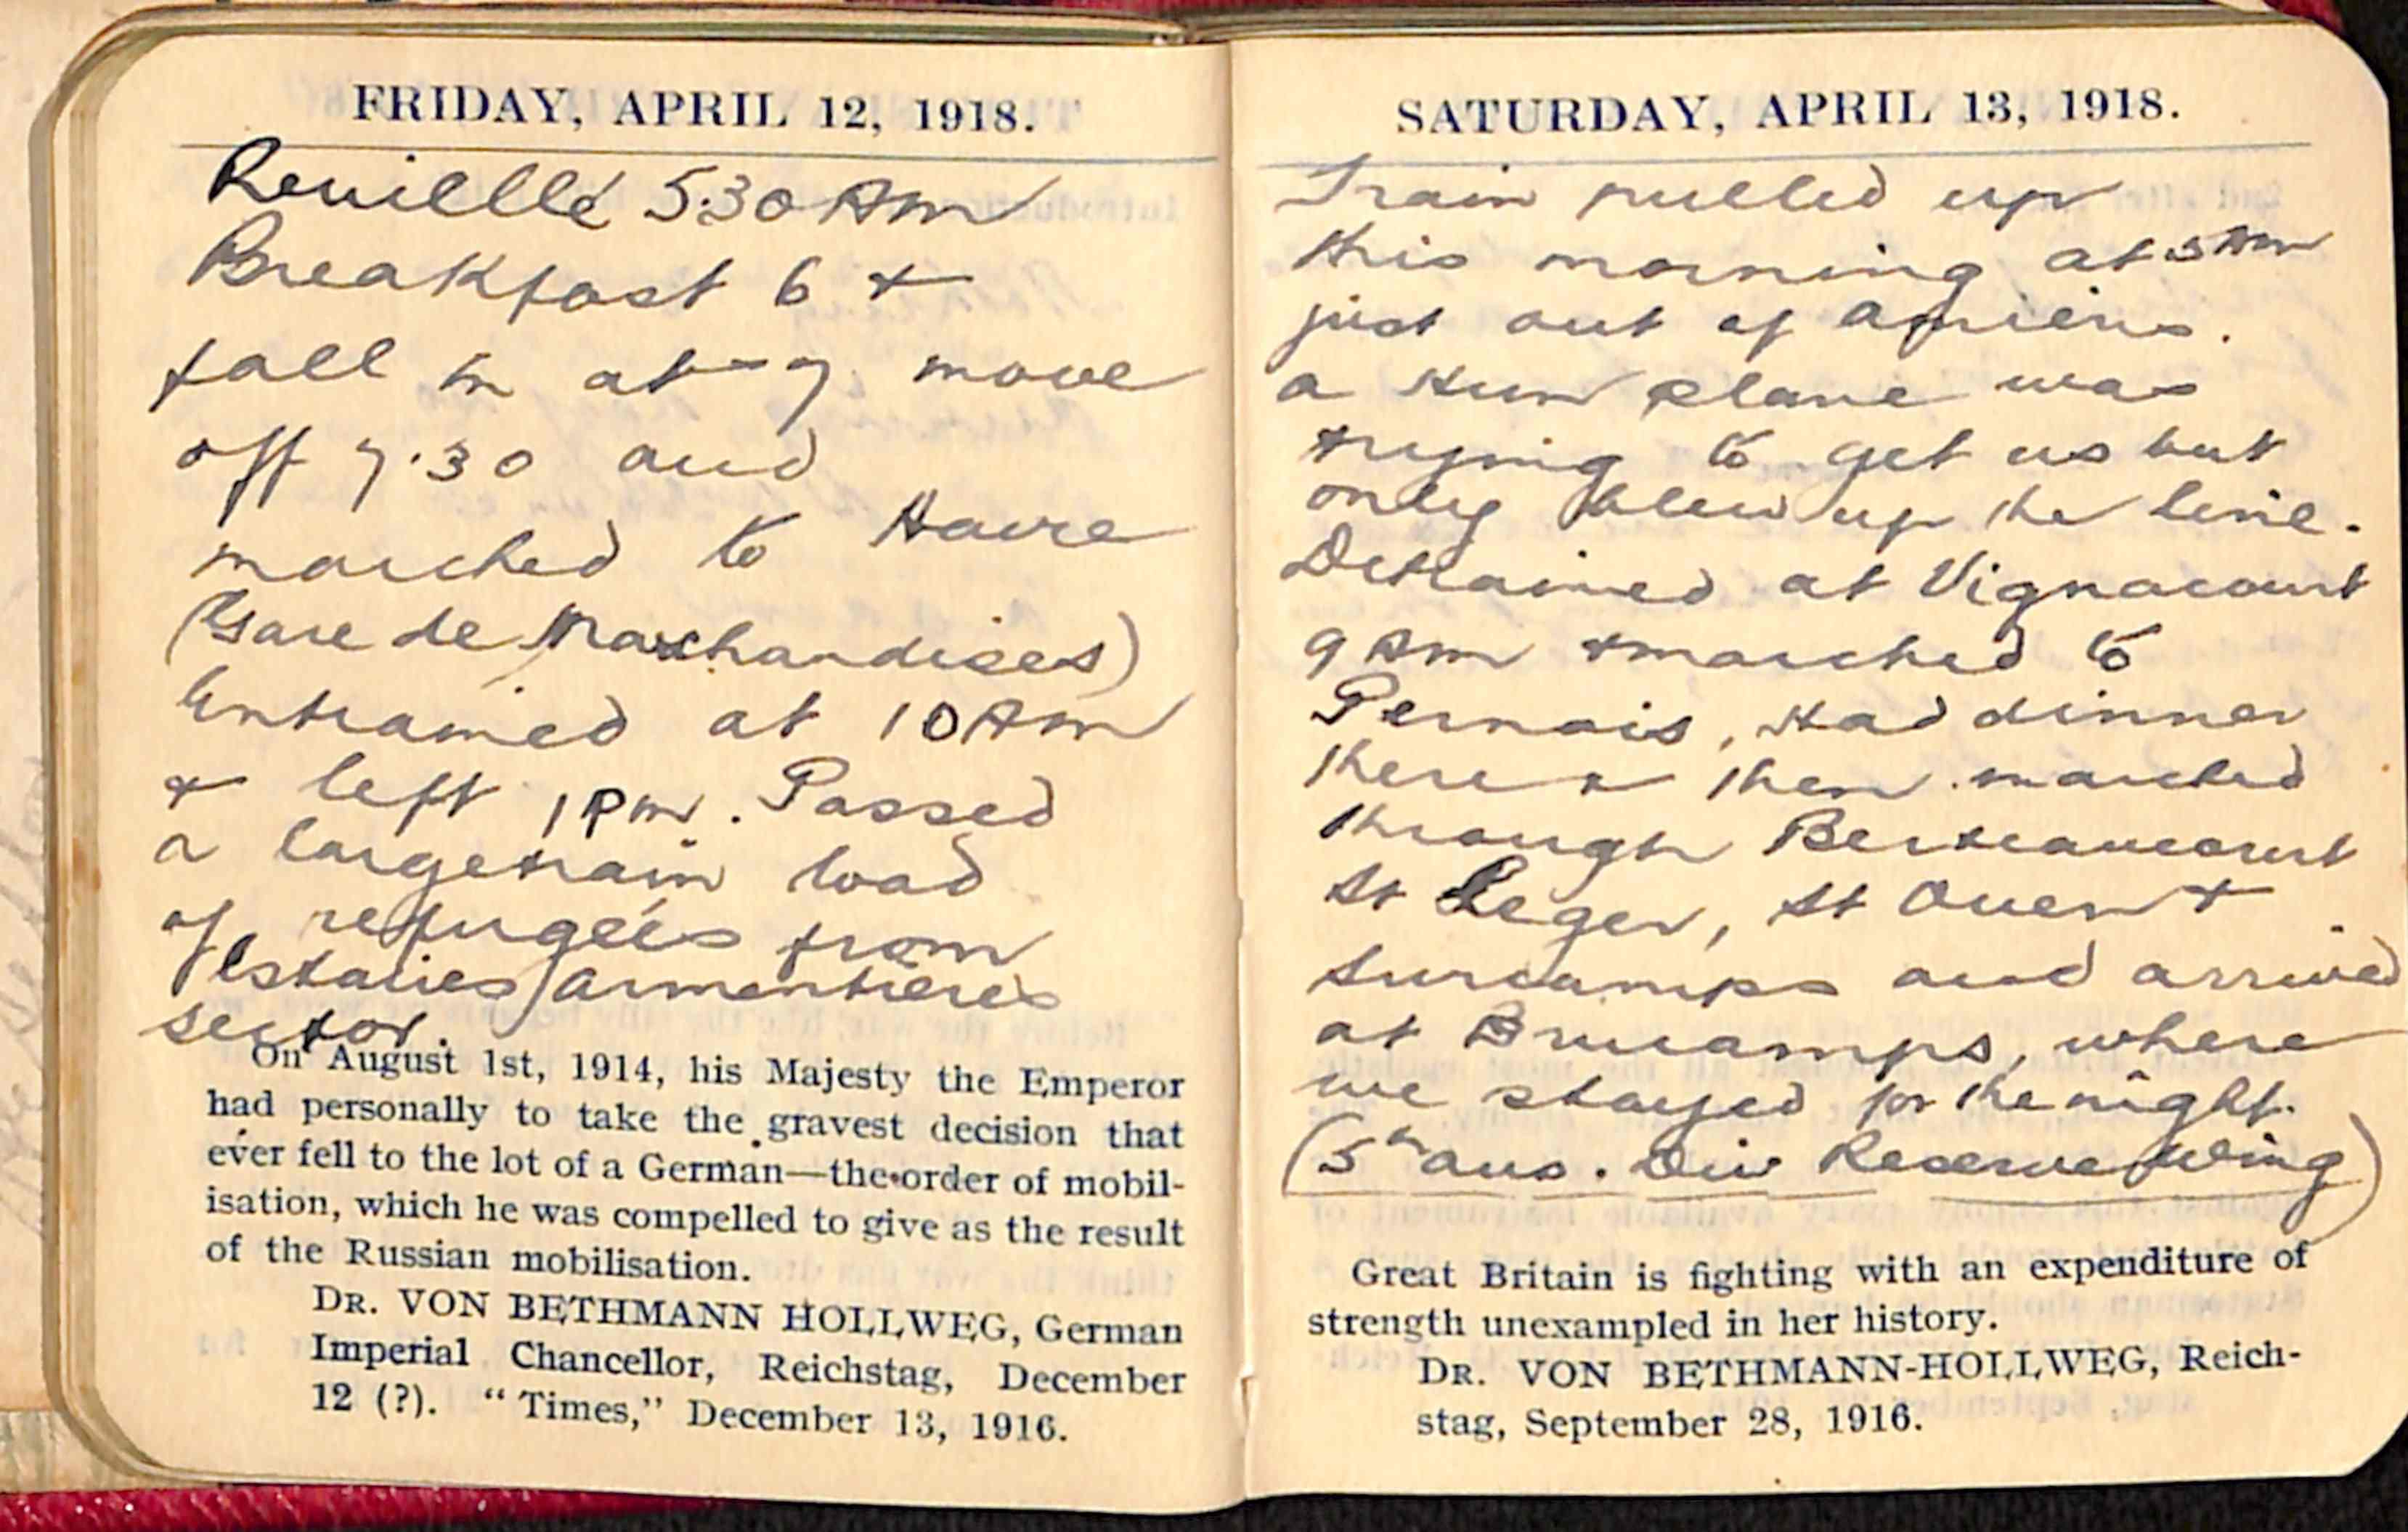 FRIDAY, APRIL 12, 1918.
Reuiellé 5.30 AM
Breakfast 6 +
fall in at 7 move
off 7.30 and
marched to Havre
(Gare de Marchandises)
Entrained at 10 AM
+ left 1 PM. Passed
a large train load
of refugees from
Estaires/Armentieres
sector.
On August 1st, 1914, his Majesty the Emperor
had personally to take the gravest decision that
ever fell to the lot of a German—the order of mobil-
isation, which he was compelled to give as the result
of the Russian mobilisation.
DR. VON BETHMANN HOLLWEG, German
Imperial Chancellor, Reichstag, December
12 (?). "Times," December 13, 1916.
SATURDAY, APRIL 13, 1918.
Train pulled up
this morning at 3 AM
just out of Amiens.
a Hun plane was
trying to get us but
only blew up the line.
Detrained at Vignacourt
9 AM + marched to
Pernois, Had dinner
there + then marched
through Berteaucourt
St Leger, St Ouen +
Surcamps and arrived
at Brucamps, where
we stayed for the night.
(5th Aus. Div Reserve Wing)
Great Britain is fighting with an expenditure of
strength unexampled in her history.
DR. VON BETHMANN-HOLLWEG, Reich-
stag, September 28, 1916.